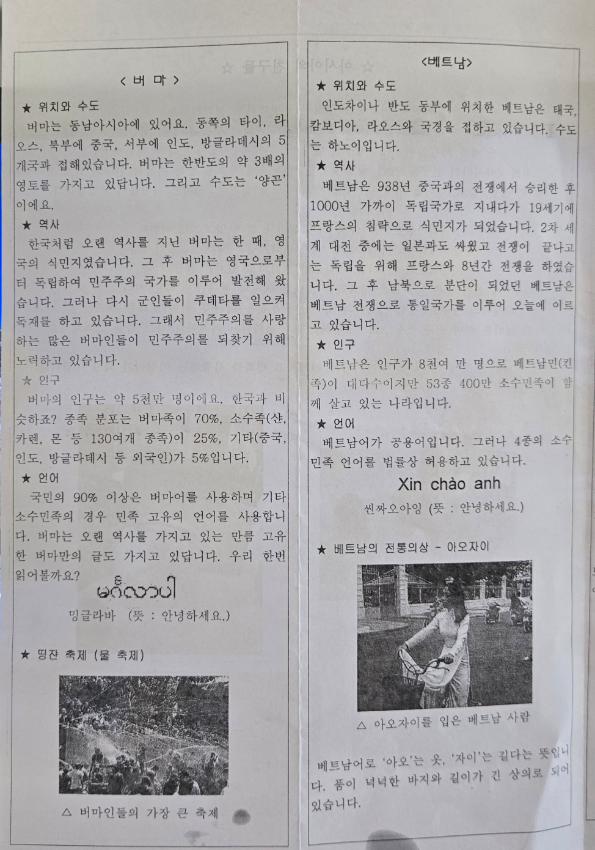 < 버 마 >
★ 위치와 수도
버마는 동남아시아에 있어요. 동쪽의 타이, 라
오스, 북부에 중국, 서부에 인도, 방글라데시의 5
개국과 접해있습니다. 버마는 한반도의 약 3배의
영토를 가지고 있답니다. 그리고 수도는 '양곤'
이에요.
★ 역사
한국처럼 오랜 역사를 지닌 버마는 한 때, 영
국의 식민지였습니다. 그 후 버마는 영국으로부
터 독립하여 민주주의 국가를 이루어 발전해 왔
습니다. 그러나 다시 군인들이 쿠테타를 일으켜
독재를 하고 있습니다. 그래서 민주주의를 사랑
하는 많은 버마인들이 민주주의를 되찾기 위해
노력하고 있습니다.
☆ 인구
버마의 인구는 약 5천만 명이에요. 한국과 비
슷하죠? 종족 분포는 버마족이 70%, 소수족(샨,
카렌, 몬 등 130여개 종족)이 25%, 기타(중국,
인도, 방글라데시 등 외국인)가 5%입니다.
★ 언어
국민의 90% 이상은 버마어를 사용하며 기타
소수민족의 경우 민족 고유의 언어를 사용합니
다. 버마는 오랜 역사를 가지고 있는 만큼 고유
한 버마만의 글도 가지고 있답니다. 우리 한번
읽어볼까요?
မင်္ဂလာပါ
밍글라바 (뜻 : 안녕하세요.)
★ 띵쟌 축제 (물 축제)
△ 버마인들의 가장 큰 축제
<베트남>
★ 위치와 수도
인도차이나 반도 동부에 위치한 베트남은 태국,
캄보디아, 라오스와 국경을 접하고 있습니다. 수도
는 하노이입니다.
★ 역사
베트남은 938년 중국과의 전쟁에서 승리한 후
1000년 가까이 독립국가로 지내다가 19세기에
프랑스의 침략으로 식민지가 되었습니다. 2차 세
계 대전 중에는 일본과도 싸웠고 전쟁이 끝나고
는 독립을 위해 프랑스와 8년간 전쟁을 하였습
니다. 그 후 남북으로 분단이 되었던 베트남은
베트남 전쟁으로 통일국가를 이루어 오늘에 이르
고 있습니다.
★ 인구
베트남은 인구가 8천여 만 명으로 베트남민(킨
족)이 대다수이지만 53종 400만 소수민족이 함
께 살고 있는 나라입니다.
★ 언어
베트남어가 공용어입니다. 그러나 4종의 소수
민족 언어를 법률상 허용하고 있습니다.
Xin chào anh
씬짜오아잉 (뜻 : 안녕하세요.)
★ 베트남의 전통의상 - 아오자이
△ 아오자이를 입은 베트남 사람
베트남어로 '아오'는 옷, '자이'는 길다는 뜻입니
다. 품이 넉넉한 바지와 길이가 긴 상의로 되어
있습니다.